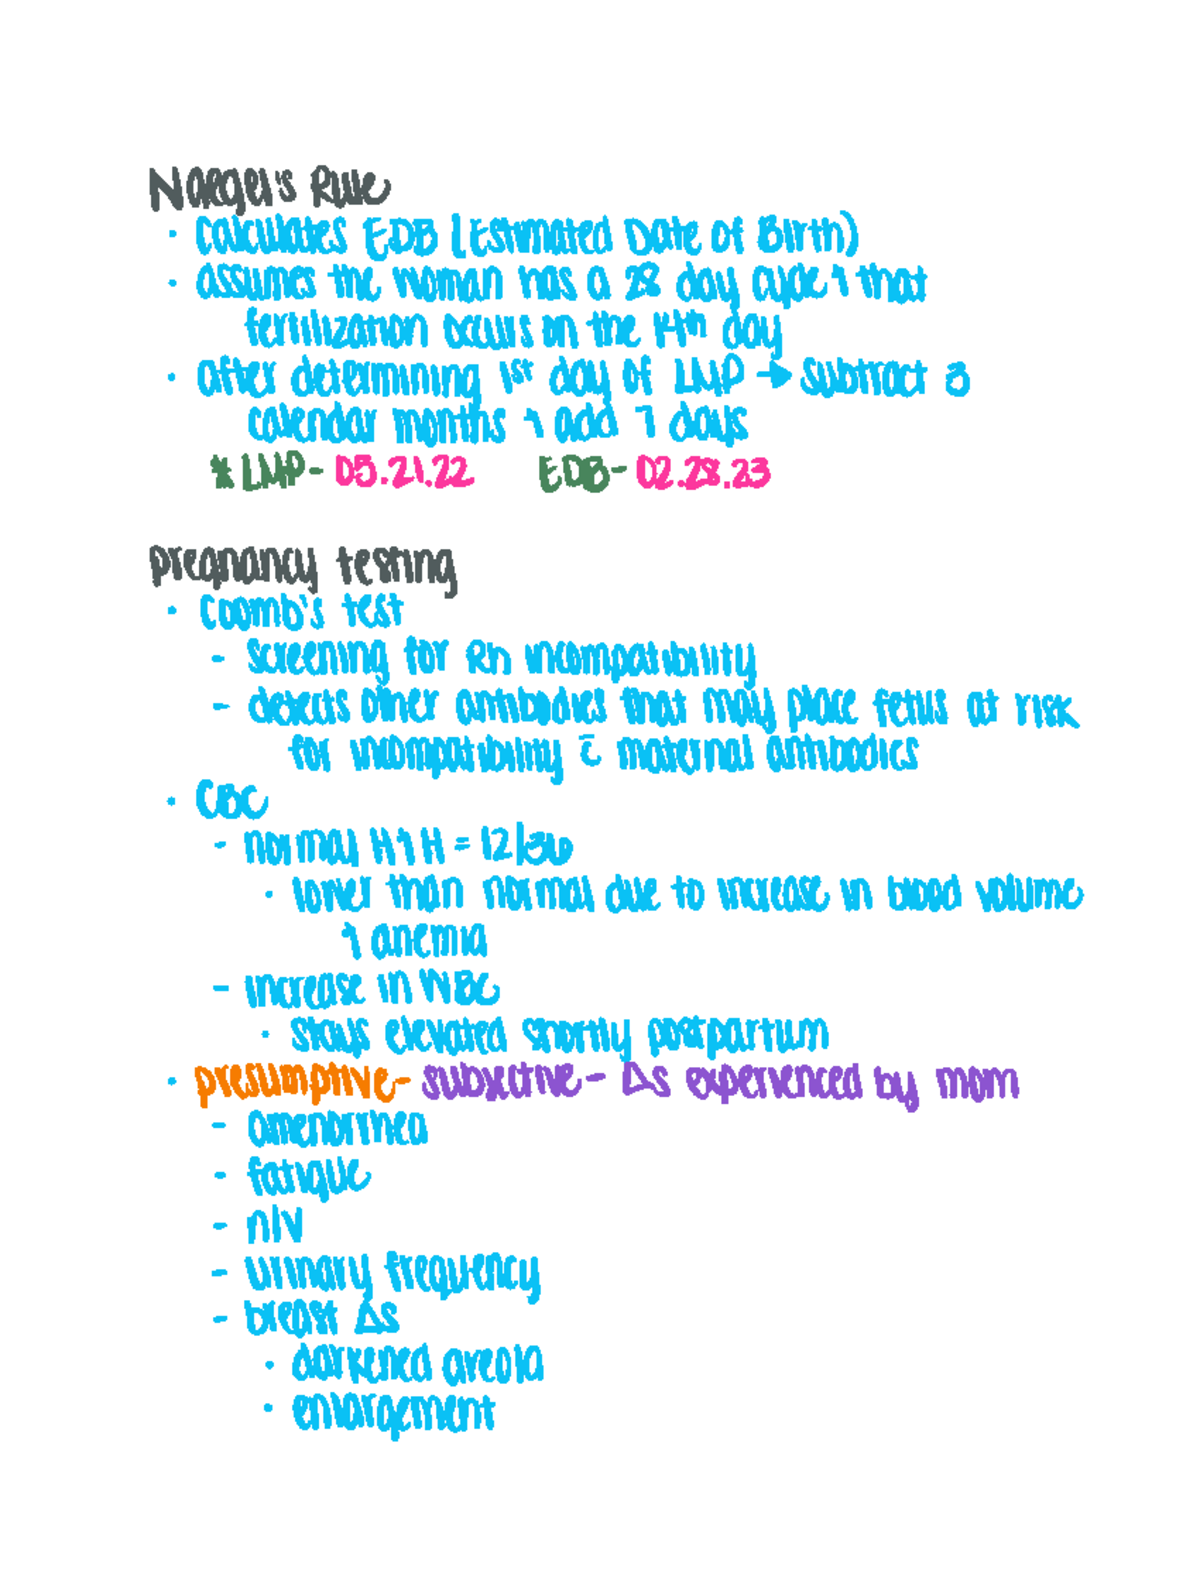 Naegel's Rule
• calculates EDB (Estimated Date of Birth)
• assumes the woman has a 28 day cycle & that
fertilization occurs on the 14th day
• after determining 1st day of LMP → subtract 3
calendar months & add 7 days
* LMP- 05.21.22 EDB- 02.28.23
pregnancy testing
• Coomb's test
- screening for Rh incompatibility
- detects other antibodies that may place fetus at risk
for incompatibility c̄ maternal antibodies
• CBC
- normal H&H = 12/36
• lower than normal due to increase in blood volume
& anemia
- increase in WBC
• stays elevated shortly postpartum
• presumptive- subjective- Δs experienced by mom
- amenorrhea
- fatigue
- n/v
- urinary frequency
- breast Δs
• darkened areola
• enlargement